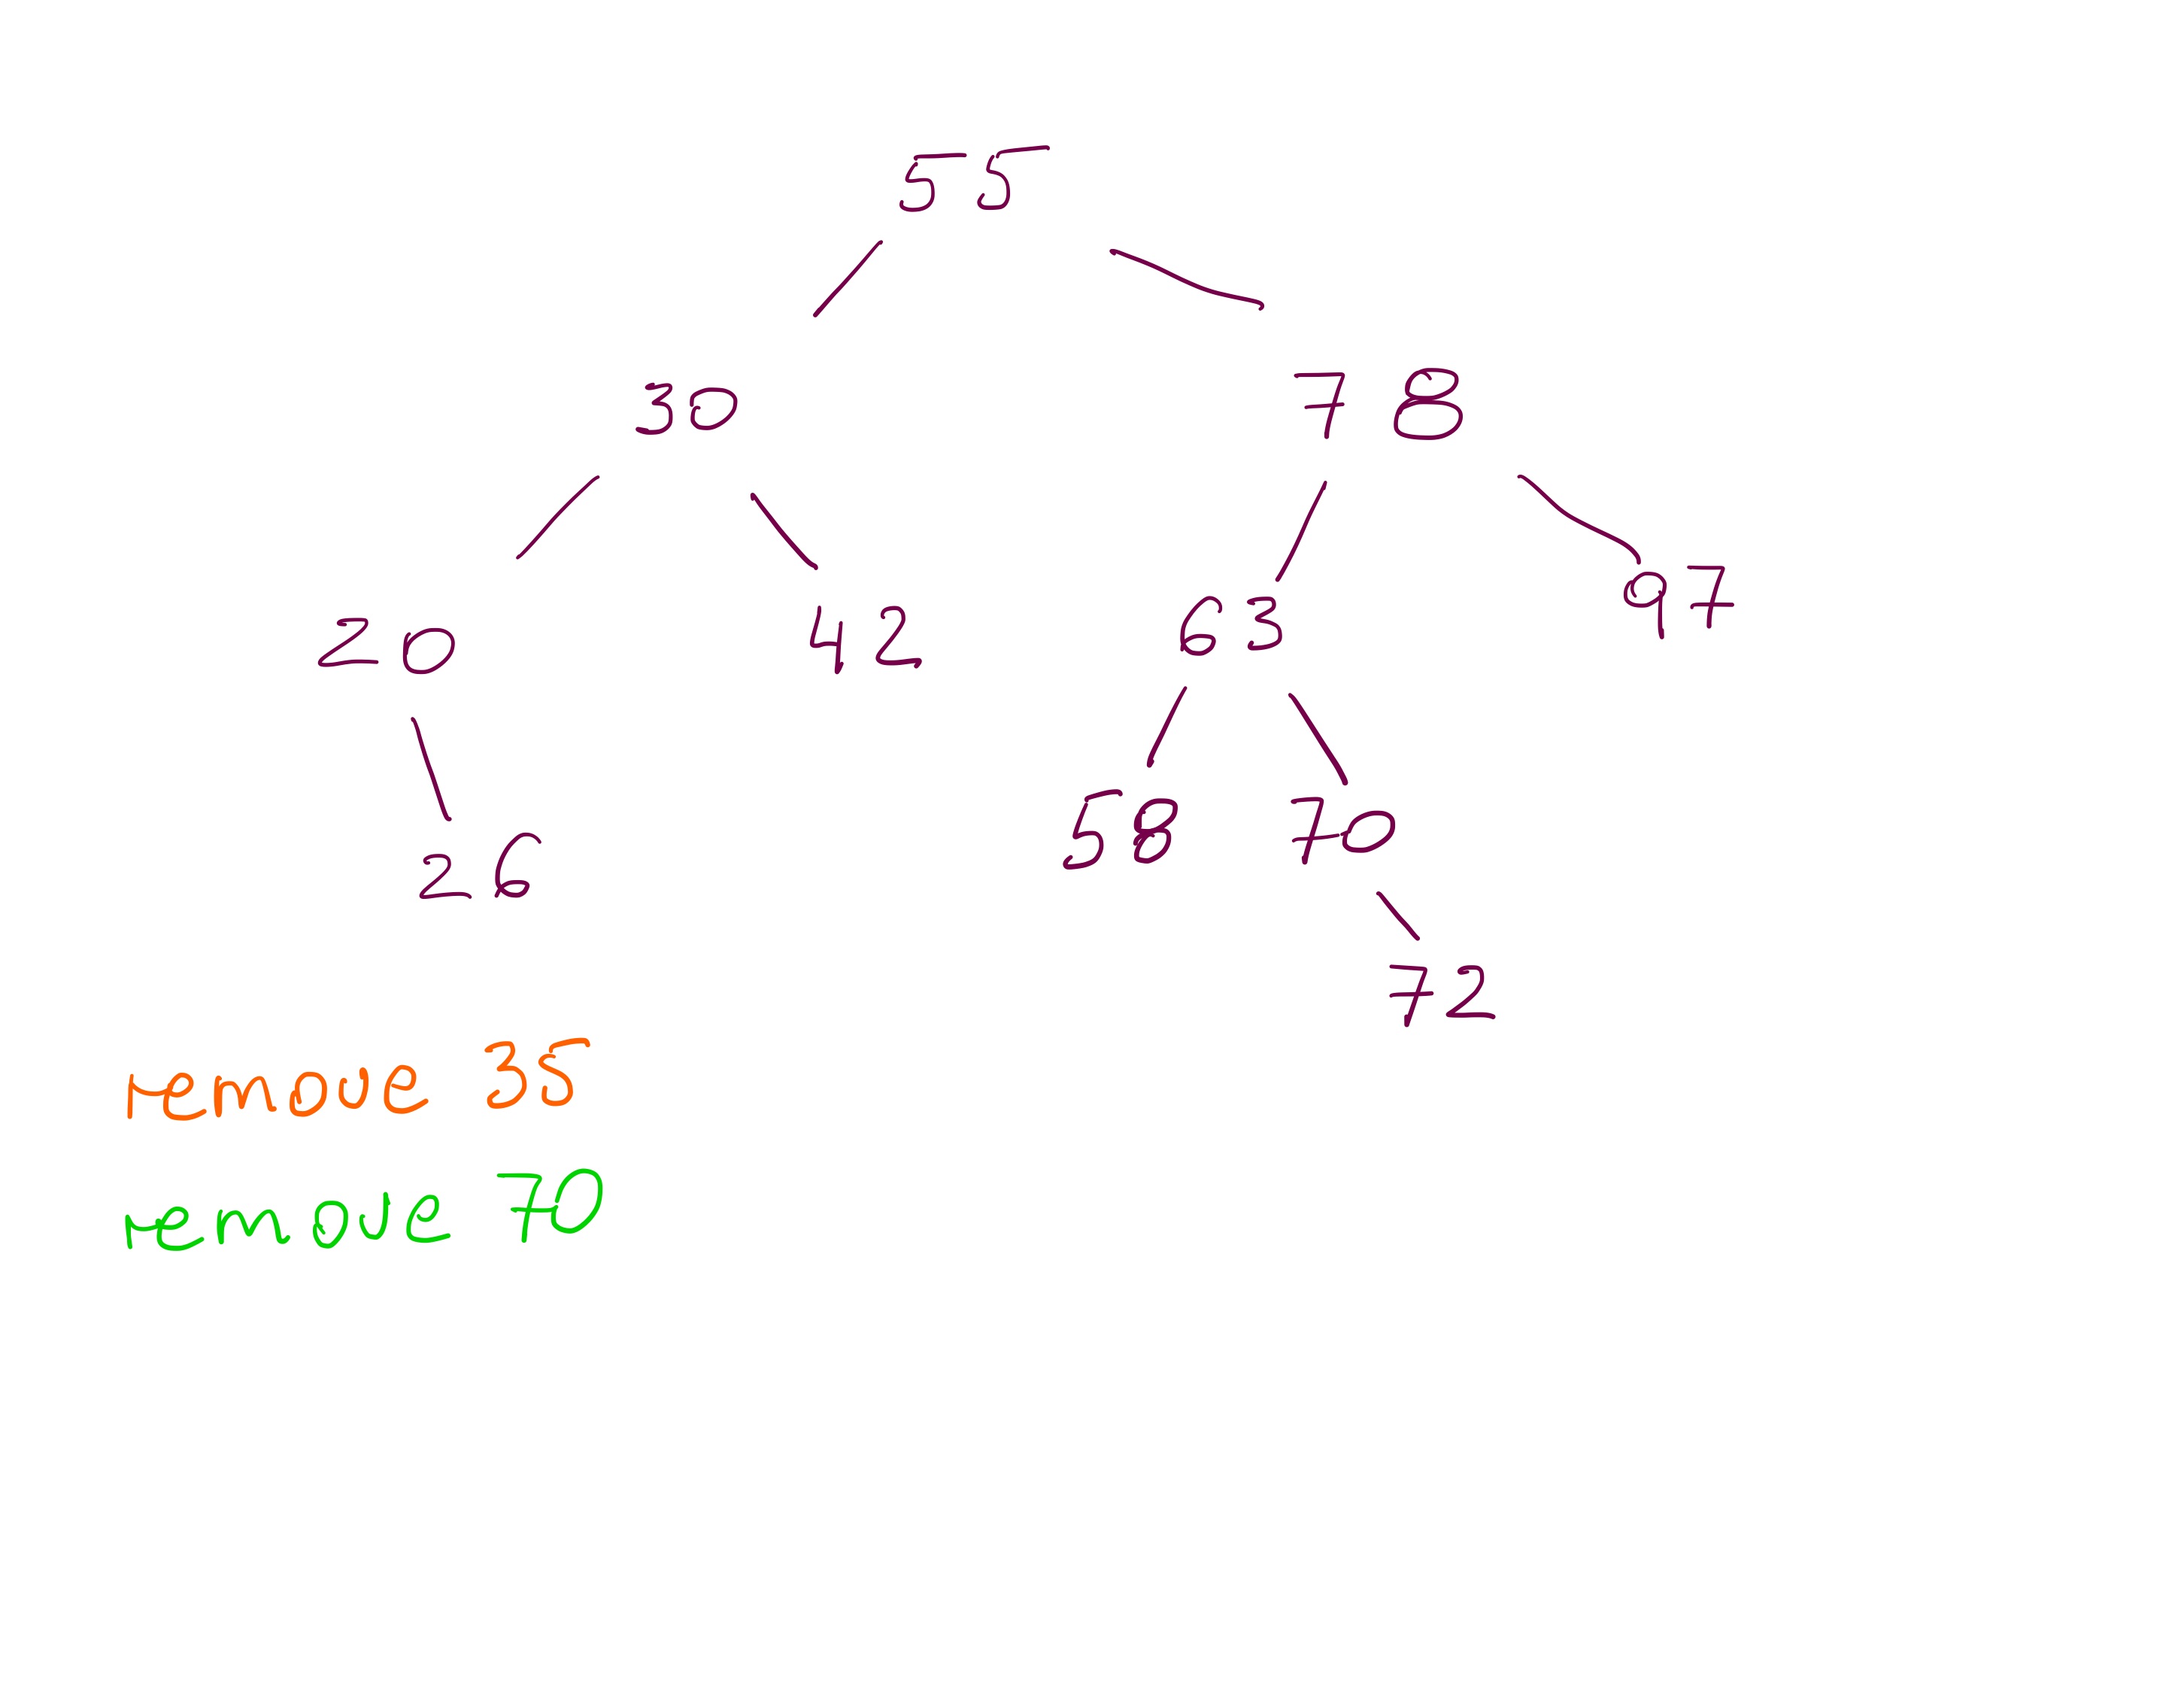 55
30 78
20 42 63 97
26 58 70
72
remove 35
remove 70